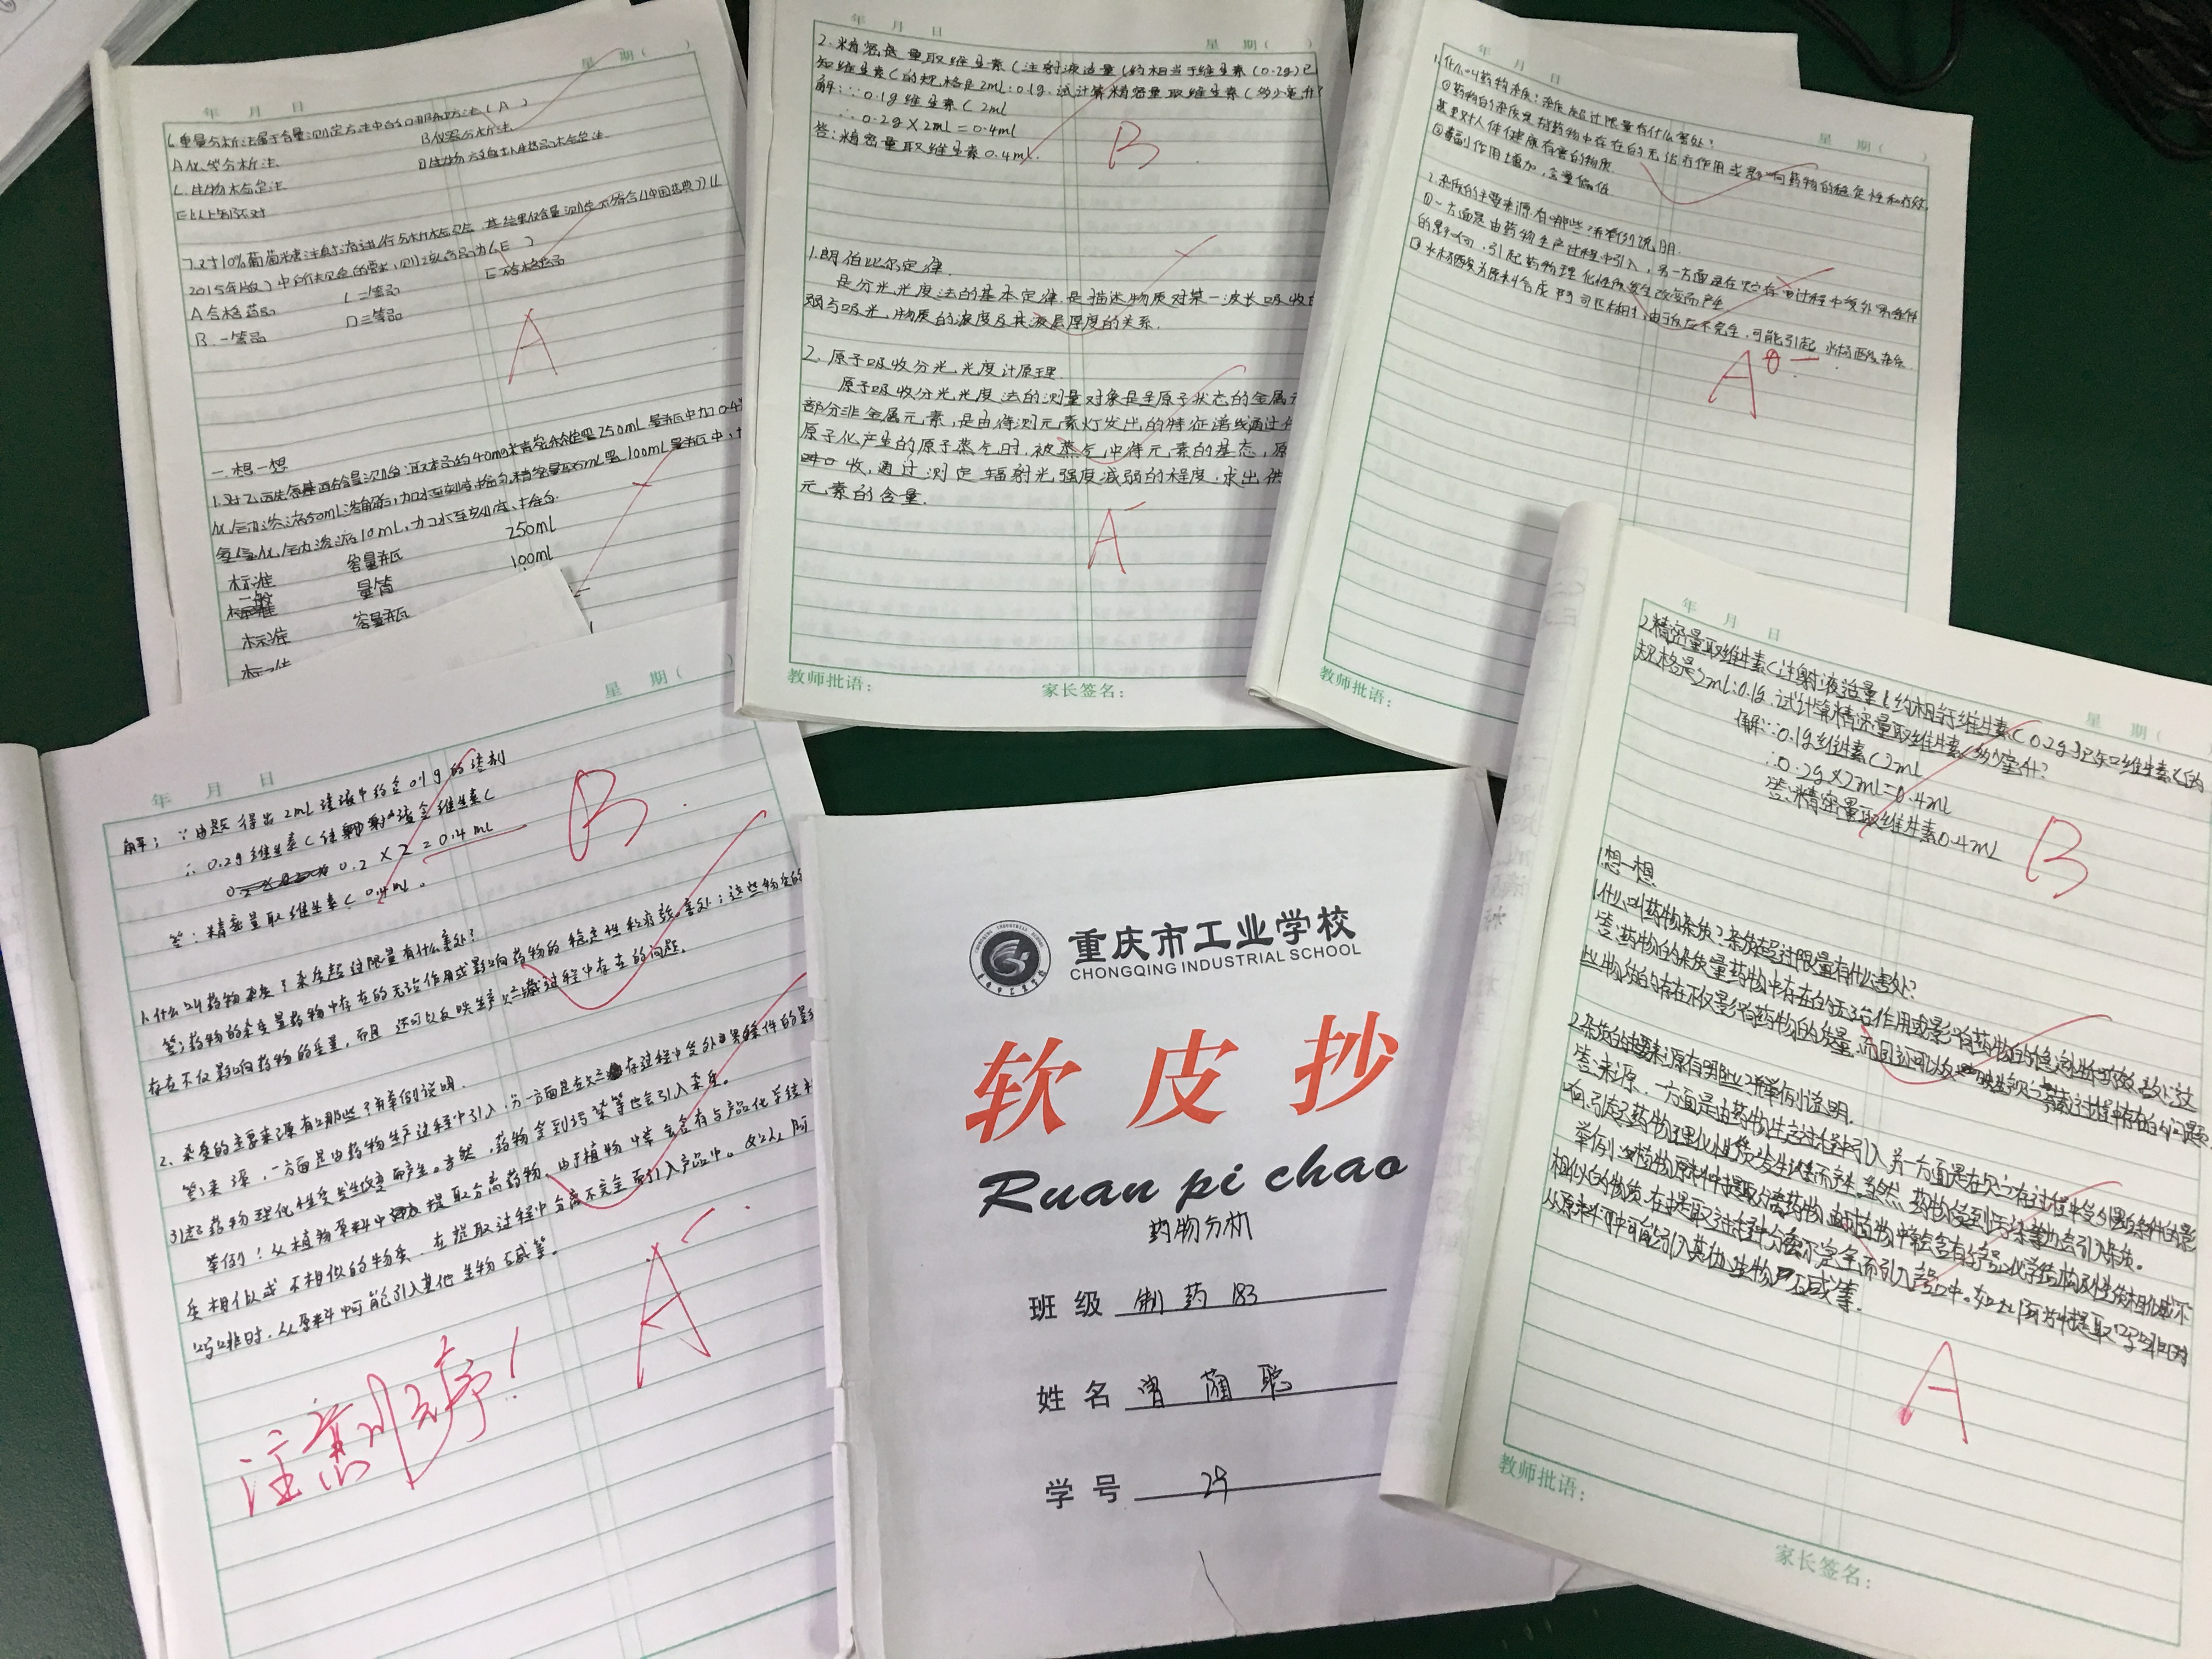 年 月 日
星 期( )
6.重量分析法属于含量测定方法中的( A )
A化学分析法 B仪器分析法
C.生物检定法
E以上都不对
2015年版》中所规定的要求,则该药品为( E )
A合格药品 C二等品 E不合格药品
B.一等品 D三等品
A
一.想一想
标准 容量瓶 250mL
一般 量筒 100ml
标准 容量瓶
年 月 日
星 期( )
2.精密量取维生素C注射液适量(约相当于维生素C0.2g)已
知维生素C的规格是2mL:0.1g.试计算精密量取维生素C多少毫升?
解:∵0.1g维生素C 2ml
∴0.2g×2ml=0.4ml
答:精密量取维生素0.4ml.
B
1.朗伯比尔定律.
是分光光度法的基本定律.是描述物质对某一波长吸收
弱与吸光.物质的浓度及其液层厚度的关系.
2.原子吸收分光光度计原理.
原子吸收分光光度法的测量对象是呈原子状态的金属
部分非金属元素,是由待测元素灯发出的特征谱线通过
原子化产生的原子蒸气时.被蒸气中待元素的基态,原
收,通过测定辐射光强度减弱的程度.求出供
元素的含量.
A-
教师批语: 家长签名:
年 月 日
星 期( )
1.什么叫药物杂质?杂质超过限量有什么害处?
①药物的杂质是指药物中存在的无治疗作用或影响药物的稳定性和疗效,
甚至对人体健康有害的物质.
②毒副作用增加,含量偏低
2.杂质的主要来源有哪些?请举例说明.
①一方面是由药物生产过程中引入,另一方面是在贮存过程中受外界条件
的影响,引起药物理化性质发生改变而产生
②水杨酸为原料合成阿司匹林时,由于反应不完全,可能引起水杨酸杂质.
A
教师批语:
年 月 日
星 期( )
解:∵由题得出2mL溶液中约含0.1g的溶剂
∴0.2g维生素C注射液含维生素C
0.2×2=0.4mL
答:精密量取维生素C 0.4mL。
B
1.什么叫药物杂质?杂质超过限量有什么害处?
答:药物的杂质是药物中存在的无治疗作用或影响药物的稳定性和疗效。害处:这些物质的
存在不仅影响药物的质量,而且还可以反映生产贮藏过程中存在的问题.
2.杂质的主要来源有哪些?并举例说明.
答:来源.一方面是由药物生产过程中引入;另一方面是在贮存过程中受外界条件的影
引起药物理化性质发生改变而产生。当然,药物受到污染等也会引入杂质。
举例:从植物原料中提取分离药物,由于植物中常会含有与产品化学结构
质相似或不相似的物质.在提取过程中分离不完全而引入产品中。如从阿
吗啡时.从原料中可能引入其他生物碱等。
A-
注意顺序!
重庆市工业学校
CHONGQING INDUSTRIAL SCHOOL
软皮抄
Ruan pi chao
药物分析
班级 制药183
姓名 曾 聪
学号
年 月 日
星 期(
2.精密量取维生素C注射液适量(约相当于维生素C 0.2g)已知维生素C的
规格是2mL:0.1g.试计算精密量取维生素C多少毫升?
解:∵0.1g维生素C 2mL
∴0.2g×2mL=0.4mL
答:精密量取维生素0.4mL
B
想一想
1.什么叫药物杂质?杂质超过限量有什么害处?
答:药物的杂质是药物中存在的无治疗作用或影响药物的稳定性和疗效.害处:这
些物质的存在不仅影响药物的质量.而且还可以反映生产贮藏过程中存在的问题
2.杂质的主要来源有哪些?并举例说明.
答:来源.一方面是由药物生产过程中引入.另一方面是在贮存过程中受外界条件的影
响.引起药物理化性质发生改变而产生.当然.药物受到污染等也会引入杂质.
举例:从植物原料中提取分离药物.由于药物中常会含有与产品化学结构及性质相似或不
相似的物质.在提取过程中分离不完全而引入产品中。如从阿片中提取吗啡时
从原料中可能引入其他生物碱等.
A
教师批语:
家长签名: